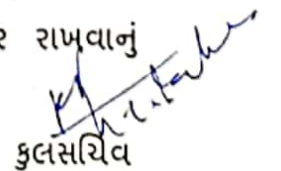 રાખવાનું
કુલસચિવ